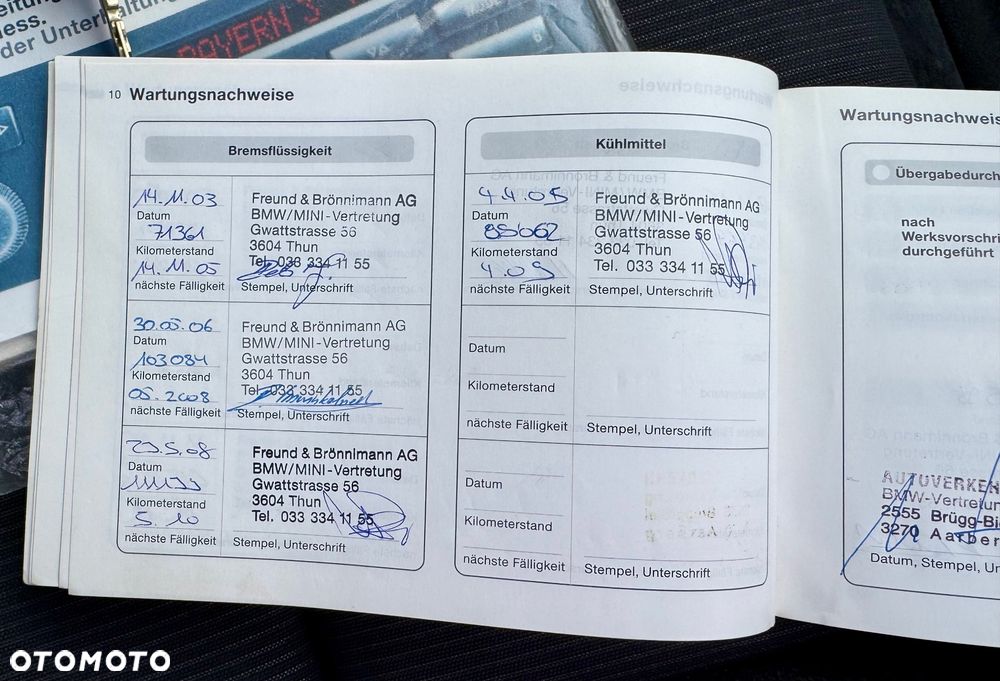 eitung
ess.
der Unterhaltung
BAYERN 3
10 Wartungsnachweise
Bremsflüssigkeit
14.11.03
Datum
71361
Kilometerstand
14.11.05
nächste Fälligkeit
Freund & Brönnimann AG
BMW/MINI-Vertretung
Gwattstrasse 56
3604 Thun
Tel. 033 334 11 55
Stempel, Unterschrift
30.05.06
Datum
103084
Kilometerstand
05.2008
nächste Fälligkeit
Freund & Brönnimann AG
BMW/MINI-Vertretung
Gwattstrasse 56
3604 Thun
Tel. 033 334 11 55
Stempel, Unterschrift
29.5.08
Datum
Kilometerstand
5.10
nächste Fälligkeit
Freund & Brönnimann AG
BMW/MINI-Vertretung
Gwattstrasse 56
3604 Thun
Tel. 033 334 11 55
Stempel, Unterschrift
Kühlmittel
4.4.05
Datum
85062
Kilometerstand
4.09
nächste Fälligkeit
Freund & Brönnimann AG
BMW/MINI-Vertretung
Gwattstrasse 56
3604 Thun
Tel. 033 334 11 55
Stempel, Unterschrift
Datum
Kilometerstand
nächste Fälligkeit
Stempel, Unterschrift
Datum
Kilometerstand
nächste Fälligkeit
Stempel, Unterschrift
Wartungsnachweise
Übergabedurch
nach
Werksvorschri
durchgeführt
AUTOVERKEH
BMW-Vertretun
2555 Brügg-Bi
3270 Aarber
Datum, Stempel, Un
OTOMOTO